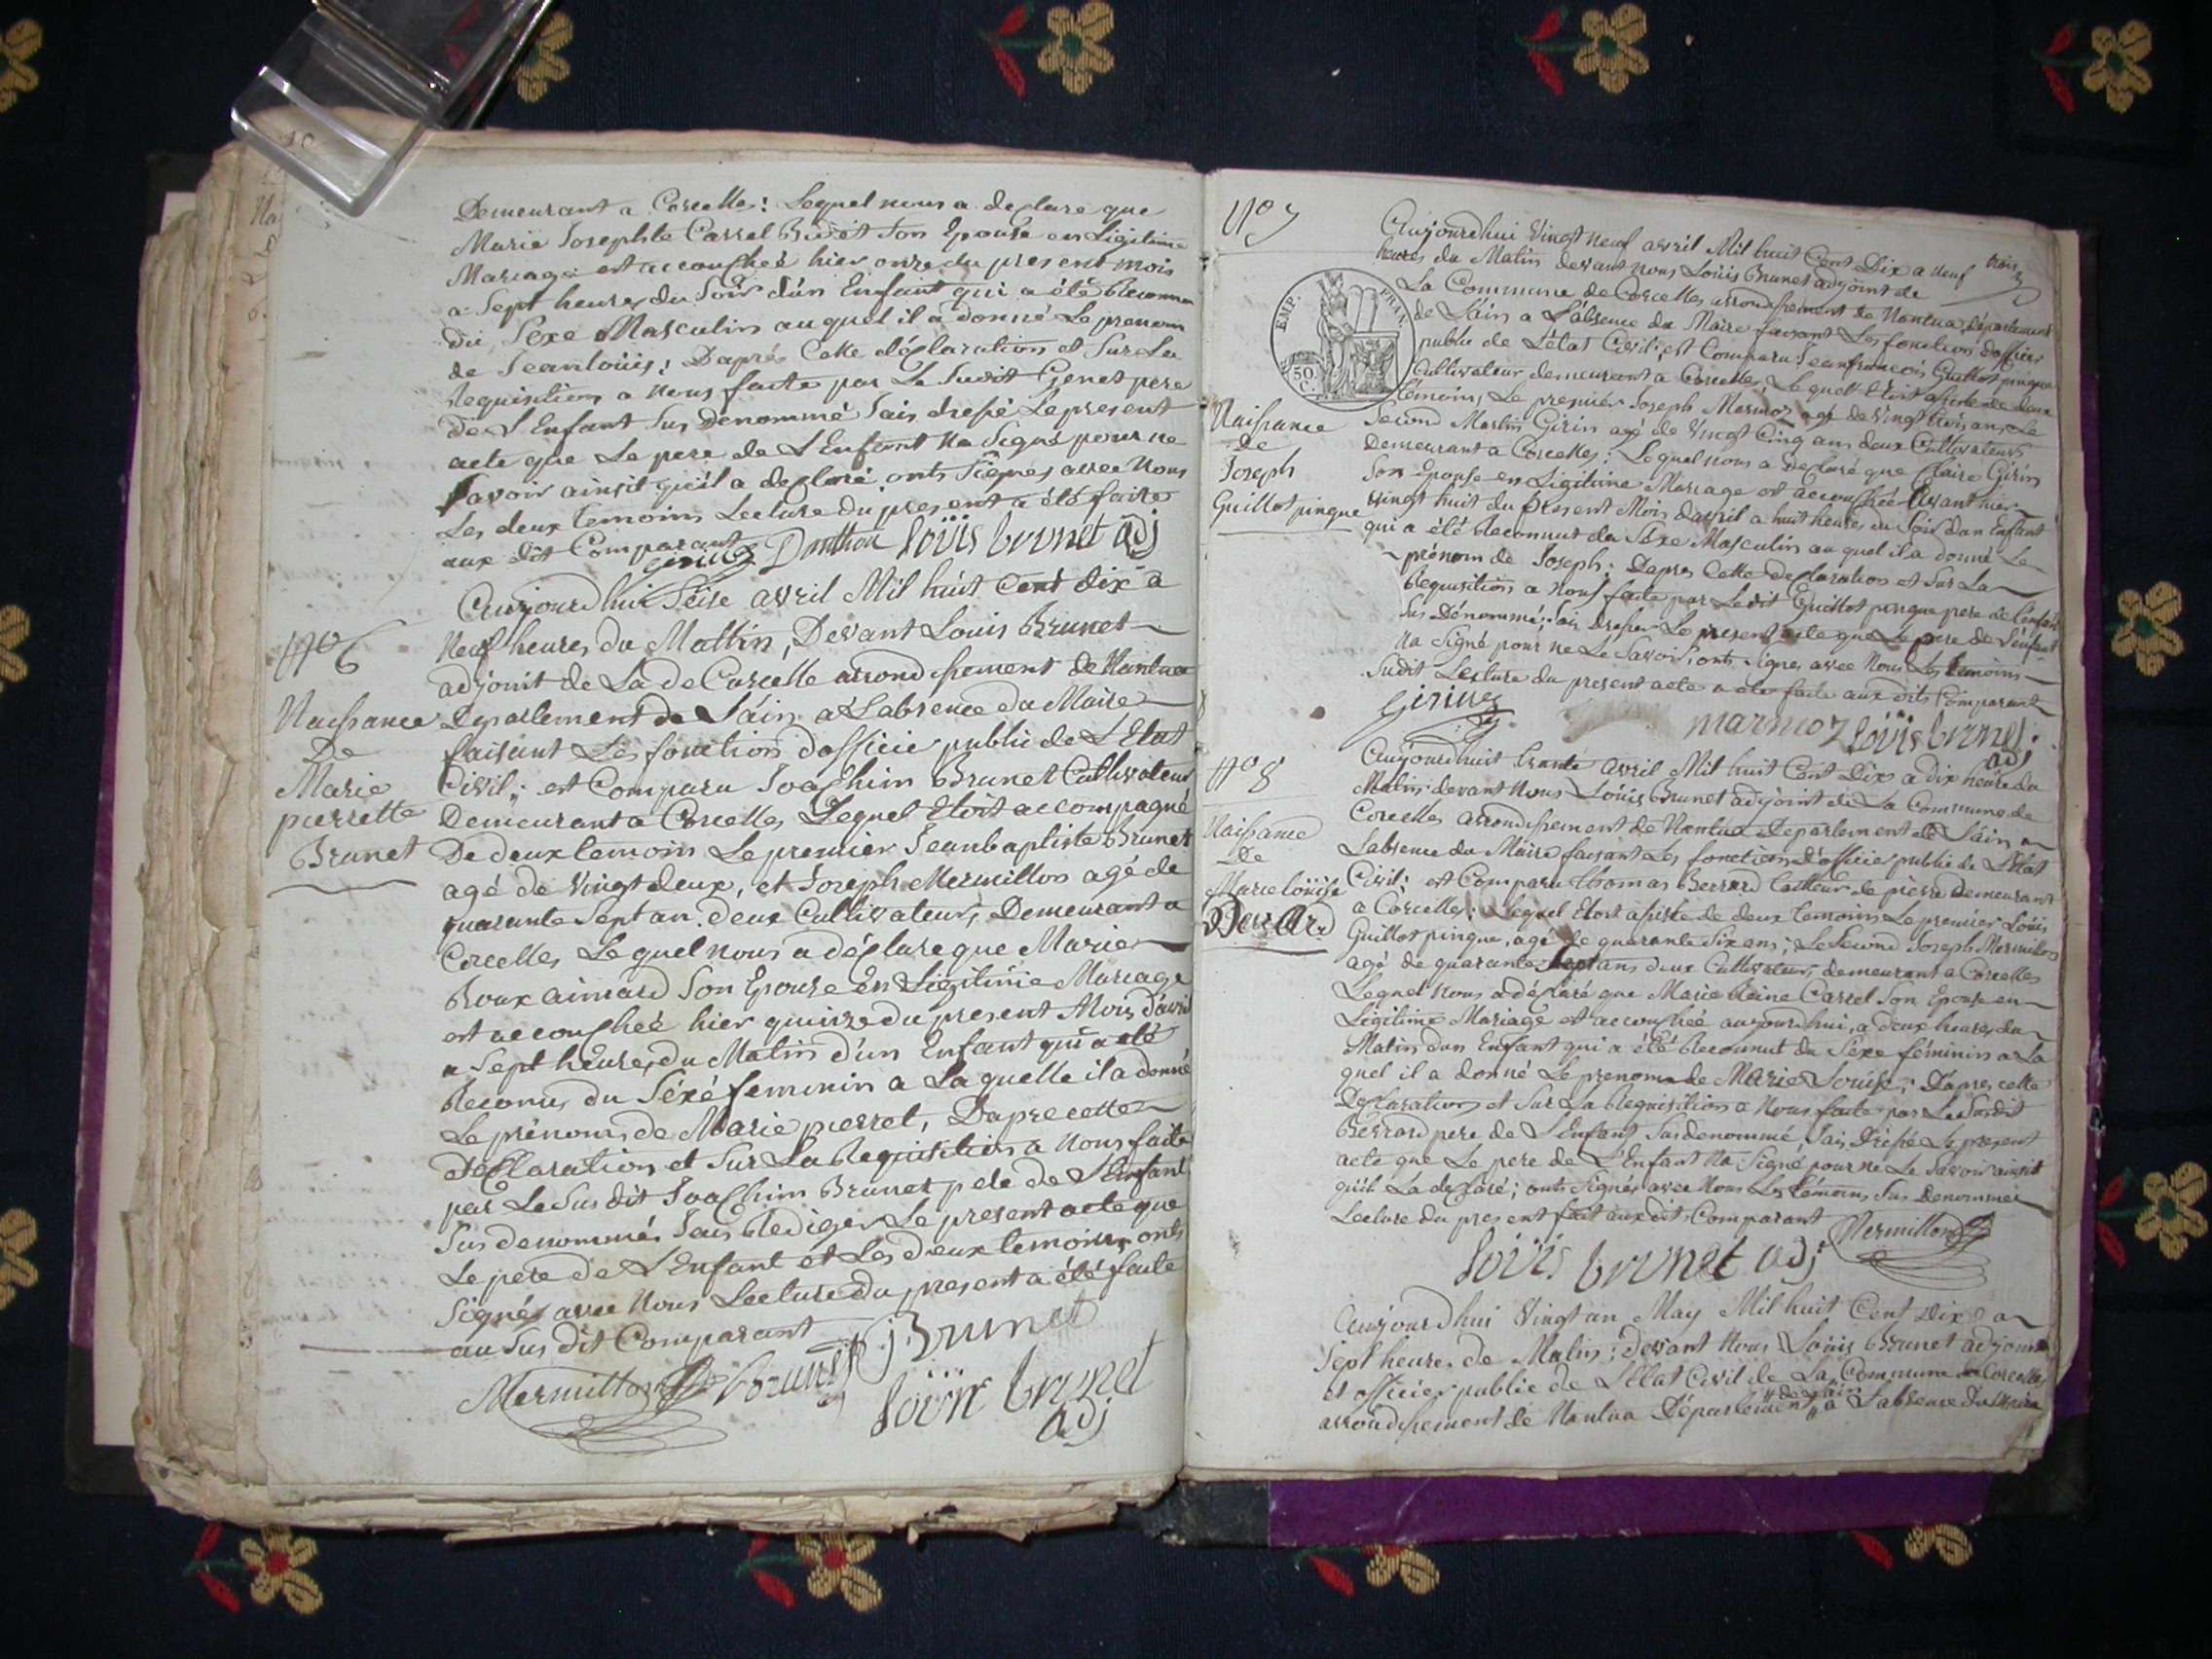 10
Na
Demeurant a Corcelle: Lequel nous a declare que
Marie Josephte Carrel Budet Son Epouse en Ligitime
Mariage est accouchée hier onze du present mois
a Sept heures du Soir d'un Enfant qui a été Reconnu
du Sexe Masculin auquel il a donné Le prenom
de Jeanlouis; Daprés Cette déclaration et Sur La
Requisition a Nous faite par Le Sudit Genet pere
de L'Enfant Sus Dénommé Jais dressé Le present
acte que Le pere de L'Enfant Na Signé pour ne
Savoir ainsit qu'il a declaré onts Signes avec Nous
Les deux temoins Lecture du present a été faite
aux dit Comparant
loüis brunet adj
N° 6
Naissance
De
Marie
pierrette
Brunet
Aujourdhui Seise avril Mil huit Cent dix a
Neuf heures du Mattin, Devant Louis Brunet
adjoint de La de Corcelle arrondissement de Nantua
Departement de Láin a Labsence du Maire
faisant Les fonction dofficié public de L'Etat
Civil; est Comparu Joachim Brunet Cultivateur
Demeurant a Corcelles Lequel Etoit accompagné
De deux temoin Le premier Jeanbaptiste Brunet
agé de Vingt deux, et Joseph Mermillon agé de
quarante Sept an deux Cultivateurs Demeurant a
Corcelles Lequel nous a déclare que Marie
Roux aimard Son Epouse En Ligitimie Mariage
est accouchée hier quinze du present Mois d'avril
a Sept heures du Matin d'un Enfant qui a été
Reconus du Séxé feminin a Laquelle il a donné
Le prénoms de Marie pierret, Dapre cette
déclaration et Sur La Requisition a nous faite
par Le Sus dit Joachim Brunet pere de L'Enfant
Sus denommé Jais Rediger Le present acte que
Le pere de L'Enfant et Les deux temoins onts
Signés avec Nous Lecture du present a été faite
au Sus dit Comparant
Mermillon brunet j Brunet
loüis brunet
adj
N° 7
EMP. FRAN.
50 C.
Naissance
De
Joseph
Guillot pinque
Aujourdhui Vingt neuf avril Mil huit Cent Dix a neuf
heures du Matin devant nous Loüis Brunet adjoint de
La Commune de Corcelles arrondissement de Nantua Departement
de Láin a L'absence du Maire faisant Les fonction dofficier
public de L'état Civil; est Comparu Jeanfrancois Guillot pinque
Cultivateur demeurant a Corcelles Lequel Etoit assisté de deux
témoins, Le premier Joseph Marmoz agé de Vingt trois ans, Le
Second Martin Girin agé de Vingt Cinq ans deux Cultivateurs
Demeurant a Corcelles: Lequel nous a declaré que Claire Girin
Son Epouse en Ligitime Mariage est accouchée Avant hier
vingt huit du Present Mois d'avril a huit heures du Soir d'un Enfant
qui a été Reconnut du Séxe Masculin auquel il a donné Le
prénom de Joseph: Dapres Cette declaration et Sur La
Requisition a Nous faite par Le dit Guillot pinque pere de L'enfant
Sus Dénommé, Jais dressée Le present acte que Le pere de L'énfant
Na Signé pour ne Le Savoir, onts Signes avec Nous Les temoins
Sudit Lecture du present acte a été faite aux dits Comparant
marmoz loüis brunet
adj
N° 8
Naissance
De
Marie loüise
Berrard
Aujourdhuit trante avril Mil huit Cent Dix a dix heure du
Matin; devant Nous Loüis Brunet adjoint de La Commune de
Corcelles arrondissement de Nantua Departement de Láin a
Labsence du Maire faisant Les fonction d'officier public de L'Etat
Civil; est Comparu Thomas Berrard tailleur de pierre demeurant
a Corcelles; Lequel Etoit assiste de deux temoins Le premier Loüis
Guillot pinque, agé de quarante Six ans; Le Second Joseph Mermillon
agé de quarante Sept ans deux Cultivateurs, demeurant a Corcelles
Lequel Nous a déclaré que Marie Reine Carrel Son Epouse en
Légitime Mariage est accouchée aujourdhui, a deux heures du
Matin d'un Enfant qui a été Reconnut du Séxe féminin a La
quel il a donné Le prenom de Marie Louise; Dapres cette
Declaration et Sur La Requisition a Nous faite par Le Susdit
Berrard pere de L'Enfant Susdenommé, Jais Dressé Le present
acte que Le pere de L'Enfant Na Signé pour ne Le Savoir ainsit
qu'il La declaré; onts Signés avec Nous Les témoins Sus Denommés
Lecture du present fait aux dit Comparant Mermillon
loüis brunet adj
Aujourdhui Vingt un May Mil huit Cent Dix a
Sept heures de Matin; devant Nous Loüis Brunet adjoint
et officier public de L'Etat Civil de La Commune de Corcelles
arrondissement de Nantua Département de Láin a L'absence du Maire